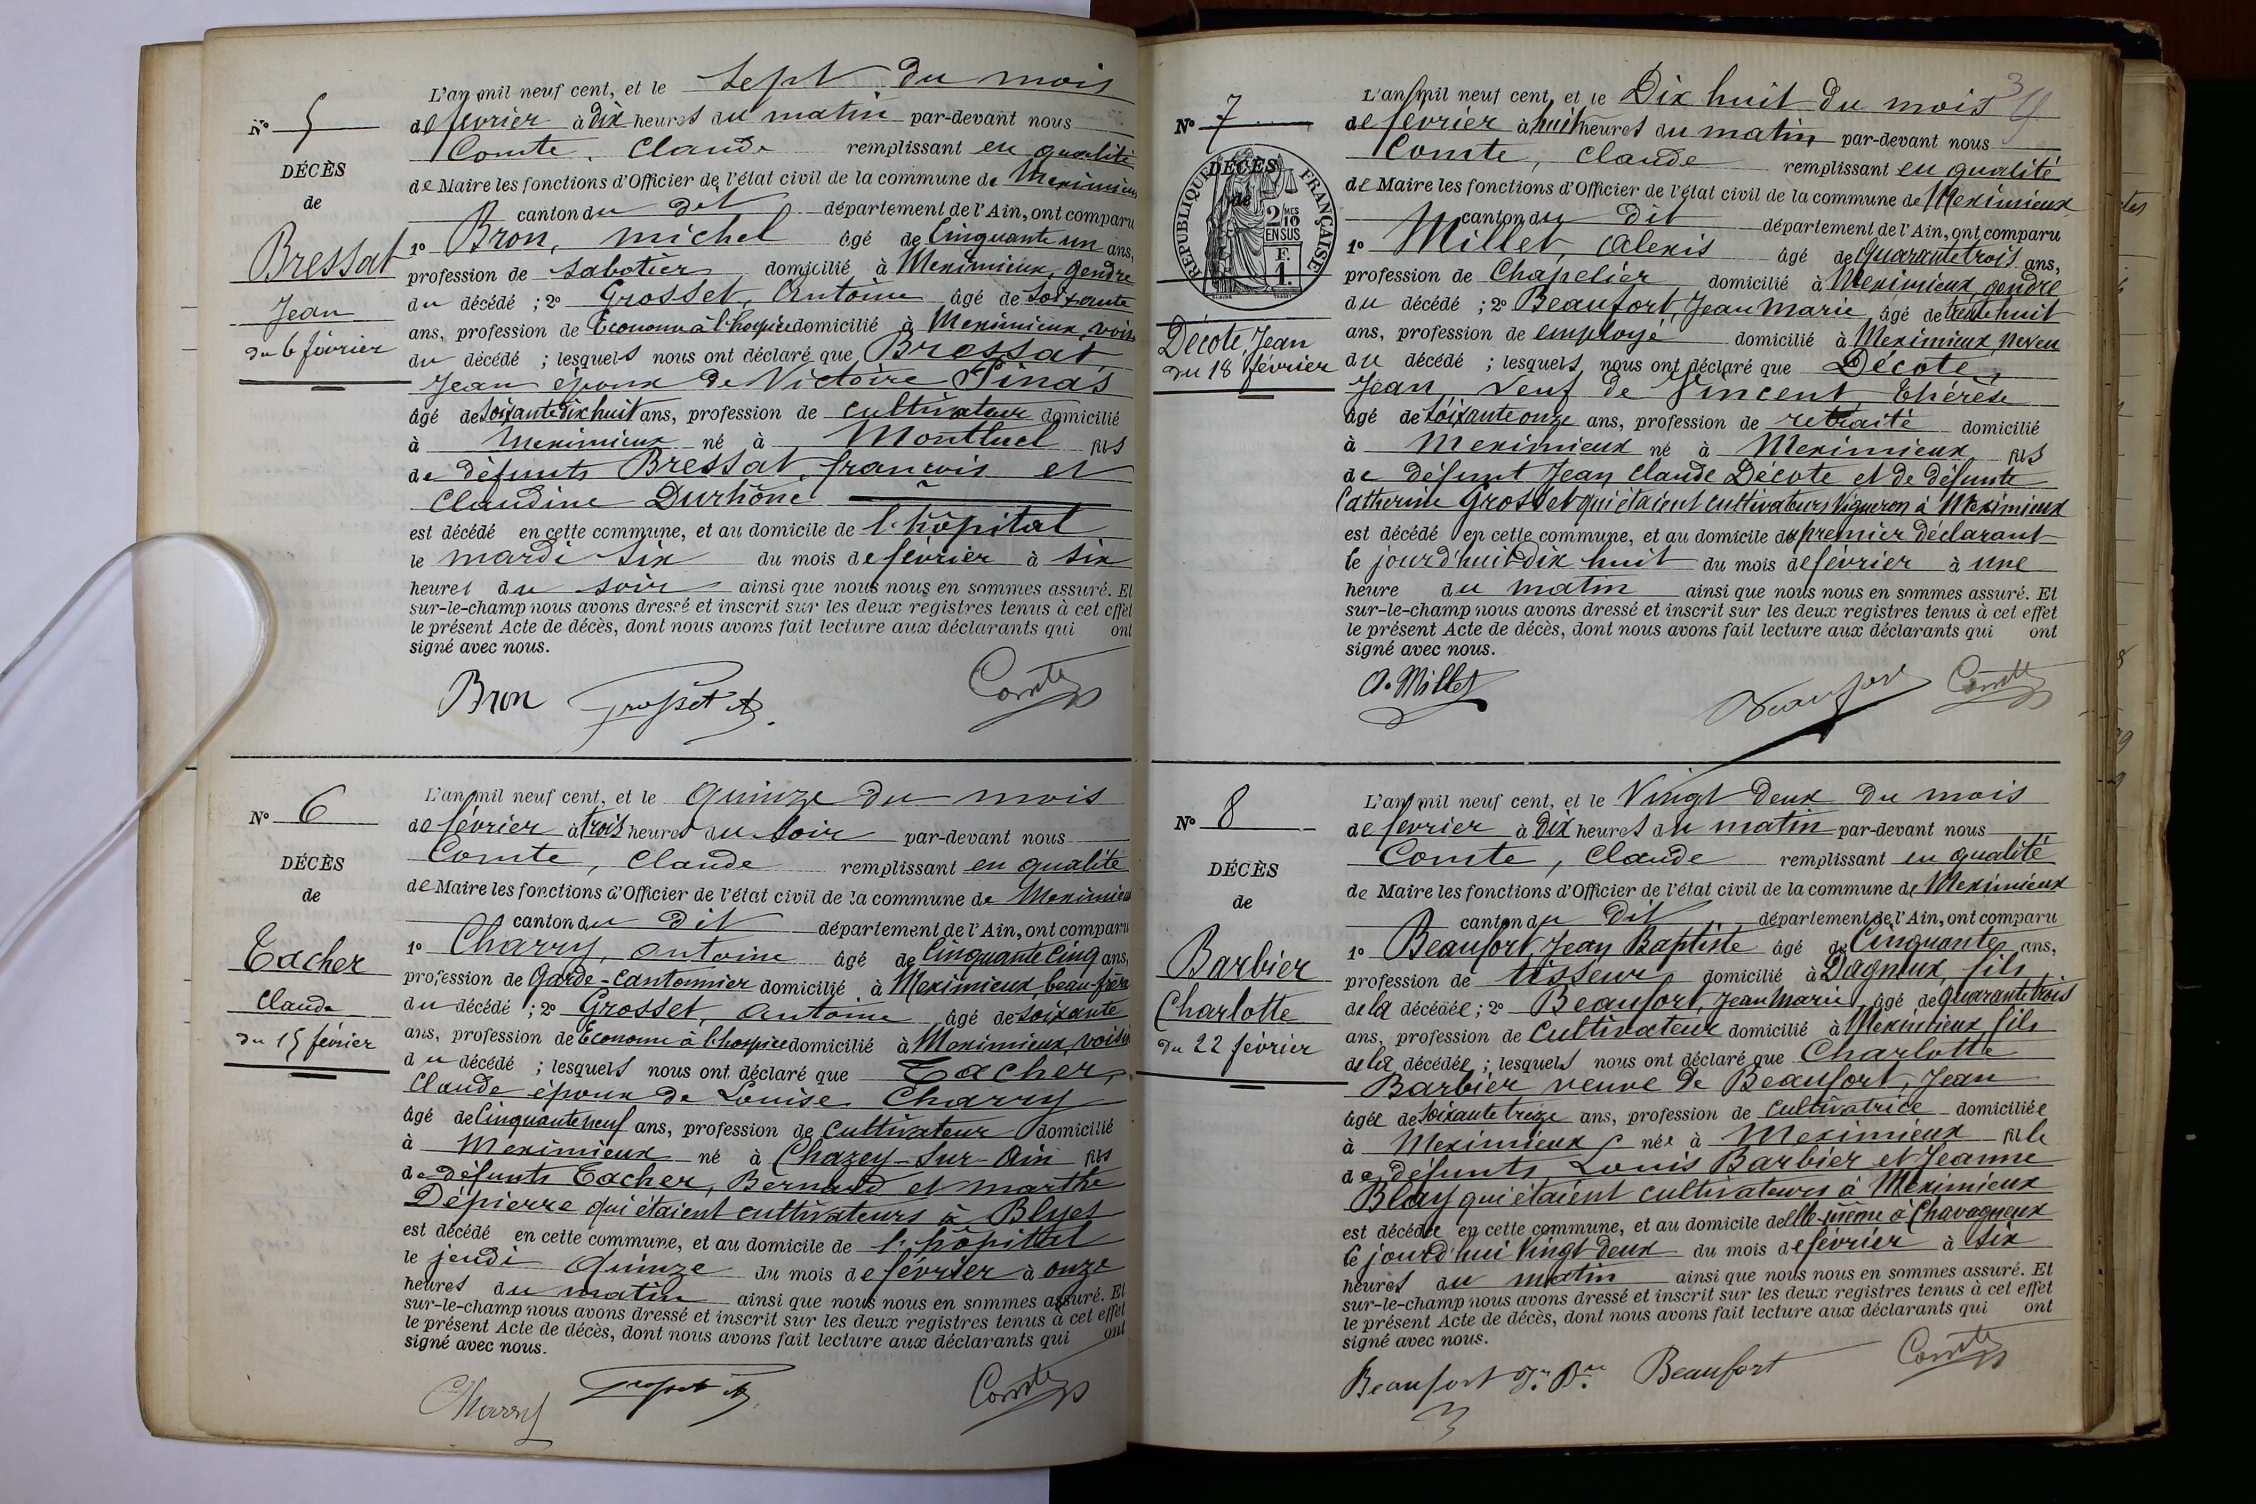 L'an mil neuf cent, et le Sept du mois
N° 5
de février à dix heures du matin par-devant nous
Comte, Claude remplissant en qualité
DÉCÈS
de Maire les fonctions d'Officier de l'état civil de la commune de Meximieux
de
canton du dit département de l'Ain, ont comparu
1° Bron, michel âgé de Cinquante un ans,
Bressat
profession de sabotier domicilié à Meximieux, gendre
du décédé ; 2° Grosset, Antoine âgé de soixante
Jean
ans, profession de Econome à l'hospice domicilié à Meximieux, voisin
du 6 février
du décédé ; lesquels nous ont déclaré que Bressat
Jean époux de Victoire Pinas
âgé de soixante dix huit ans, profession de cultivateur domicilié
à Meximieux né à Montluel fils
de défunts Bressat, françois et
Claudine Durhône
est décédé en cette commune, et au domicile de l'hôpital
le mardi six du mois de février à six
heures du soir ainsi que nous nous en sommes assuré. Et
sur-le-champ nous avons dressé et inscrit sur les deux registres tenus à cet effet
le présent Acte de décès, dont nous avons fait lecture aux déclarants qui ont
signé avec nous.
Bron Grosset A. Comte
L'an mil neuf cent, et le quinze du mois
N° 6
de février à trois heures du soir par-devant nous
Comte, Claude remplissant en qualité
DÉCÈS
de Maire les fonctions d'Officier de l'état civil de la commune de Meximieux
de
canton du dit département de l'Ain, ont comparu
1° Charry, Antoine âgé de Cinquante Cinq ans,
Tacher
profession de Garde-cantonnier domicilié à Meximieux, beau-frère
Claude
du décédé ; 2° Grosset, Antoine âgé de soixante
du 15 février
ans, profession de Econome à l'hospice domicilié à Meximieux, voisin
du décédé ; lesquels nous ont déclaré que Tacher,
Claude époux de Louise Charry
âgé de Cinquante neuf ans, profession de Cultivateur domicilié
à Meximieux né à Chazey-sur-Ain fils
de défunts Tacher, Bernard et marthe
Dépierre qui étaient cultivateurs à Blyes
est décédé en cette commune, et au domicile de l'hôpital
le jeudi Quinze du mois de février à onze
heures du matin ainsi que nous nous en sommes assuré. Et
sur-le-champ nous avons dressé et inscrit sur les deux registres tenus à cet effet
le présent Acte de décès, dont nous avons fait lecture aux déclarants qui ont
signé avec nous.
Charry Grosset A. Comte
L'an mil neuf cent, et le Dix huit du mois
N° 7
de février à huit heures du matin par-devant nous
Comte, Claude remplissant en qualité
DÉCÈS
de
RÉPUBLIQUE FRANÇAISE
2/10MES
EN SUS
F.
1.
de Maire les fonctions d'Officier de l'état civil de la commune de Meximieux
canton du dit département de l'Ain, ont comparu
1° Millet, Alexis âgé de Quarante trois ans,
profession de Chapelier domicilié à Meximieux, gendre
du décédé ; 2° Beaufort, Jean Marie, âgé de trente huit
Décote, Jean
ans, profession de employé domicilié à Meximieux, Neveu
du 18 février
du décédé ; lesquels nous ont déclaré que Décote,
Jean, veuf de Vincent, Thérèse
âgé de soixante onze ans, profession de retraité domicilié
à Meximieux né à Meximieux fils
de défunt Jean Claude Décote et de défunte
Catherine Grosset qui étaient cultivateurs Vigneron à Meximieux
est décédé en cette commune, et au domicile du premier déclarant
le jourd'hui dix huit du mois de février à une
heure du matin ainsi que nous nous en sommes assuré. Et
sur-le-champ nous avons dressé et inscrit sur les deux registres tenus à cet effet
le présent Acte de décès, dont nous avons fait lecture aux déclarants qui ont
signé avec nous.
A. Millet Beaufort Comte
L'an mil neuf cent, et le Vingt deux du mois
N° 8
de février à dix heures du matin par-devant nous
Comte, Claude remplissant en qualité
DÉCÈS
de Maire les fonctions d'Officier de l'état civil de la commune de Meximieux
de
canton du dit département de l'Ain, ont comparu
1° Beaufort, Jean Baptiste âgé de Cinquante ans,
Barbier
profession de tisseur domicilié à Dagneux, fils
Charlotte
de la décédée ; 2° Beaufort, Jean Marie, âgé de quarante trois
du 22 février
ans, profession de Cultivateur domicilié à Meximieux fils
de la décédée ; lesquels nous ont déclaré que Charlotte
Barbier veuve de Beaufort, Jean
âgée de soixante treize ans, profession de cultivatrice domiciliée
à Meximieux née à Meximieux fille
de défunts Louis Barbier et Jeanne
Blay qui étaient cultivateurs à Meximieux
est décédée en cette commune, et au domicile d'elle-même à Chavagneux
le jourd'hui Vingt deux du mois de février à six
heures du matin ainsi que nous nous en sommes assuré. Et
sur-le-champ nous avons dressé et inscrit sur les deux registres tenus à cet effet
le présent Acte de décès, dont nous avons fait lecture aux déclarants qui ont
signé avec nous.
Beaufort Jn Bte Beaufort Comte